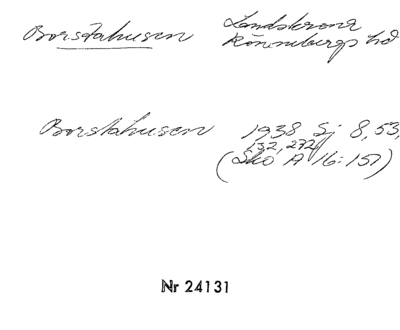 Borstahusen Landskrona
Rönnebergs hd
Borstahusen 1938 Sj 8,53,
132,272
(Skö A 16:157)
Nr 24131